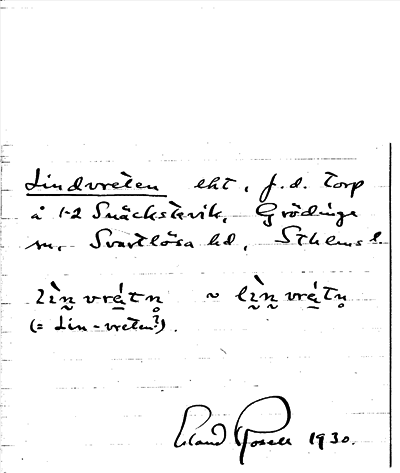 Lindvreten lht, f.d. torp
å 1-2 Snäckstavik, Grödinge
sn, Svartlösa hd, Sthlms l.
lìn̥ vrét̥n̥ ~ lìn̥ vrét̥n̥
(= Lin-vreten?).
Erland Rosell 1930.